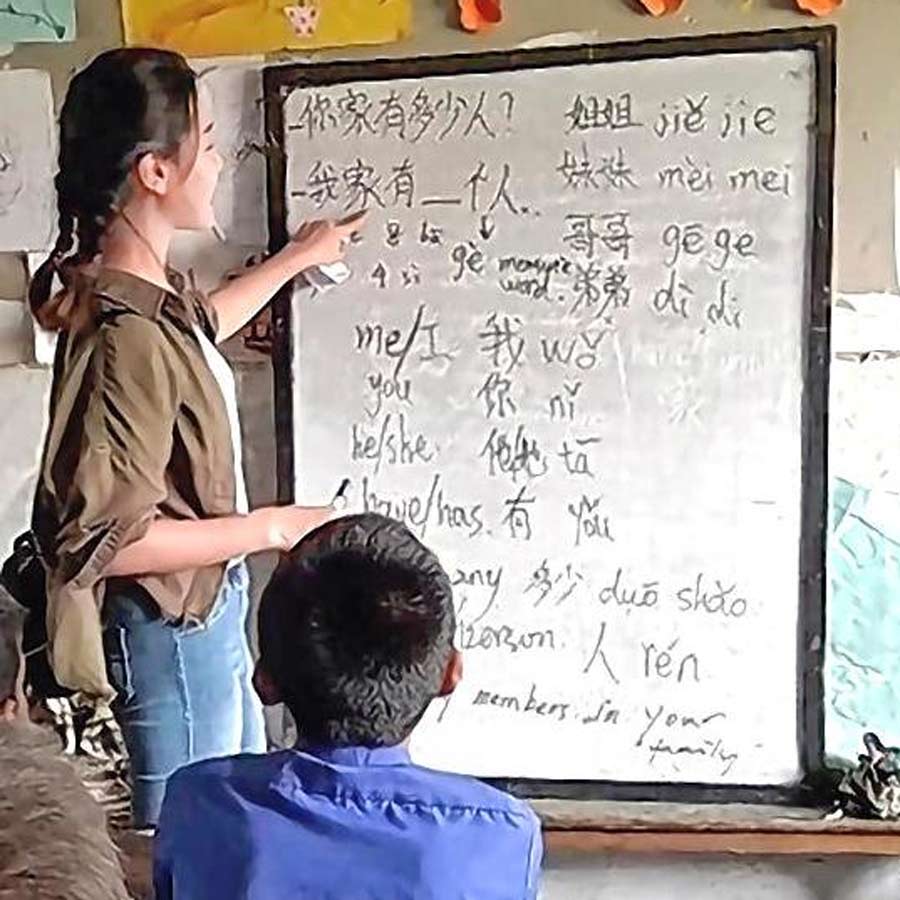 -你家有多少人?
-我家有__个人..
gè measure
word.
4 sì
姐姐 jiě jie
妹妹 mèi mei
哥哥 gē ge
弟弟 dì di
me/I 我 wǒ
you 你 nǐ
he/she 他她 tā
have/has 有 yǒu
any 多少 duō shǎo
person. 人 rén
members in your
family